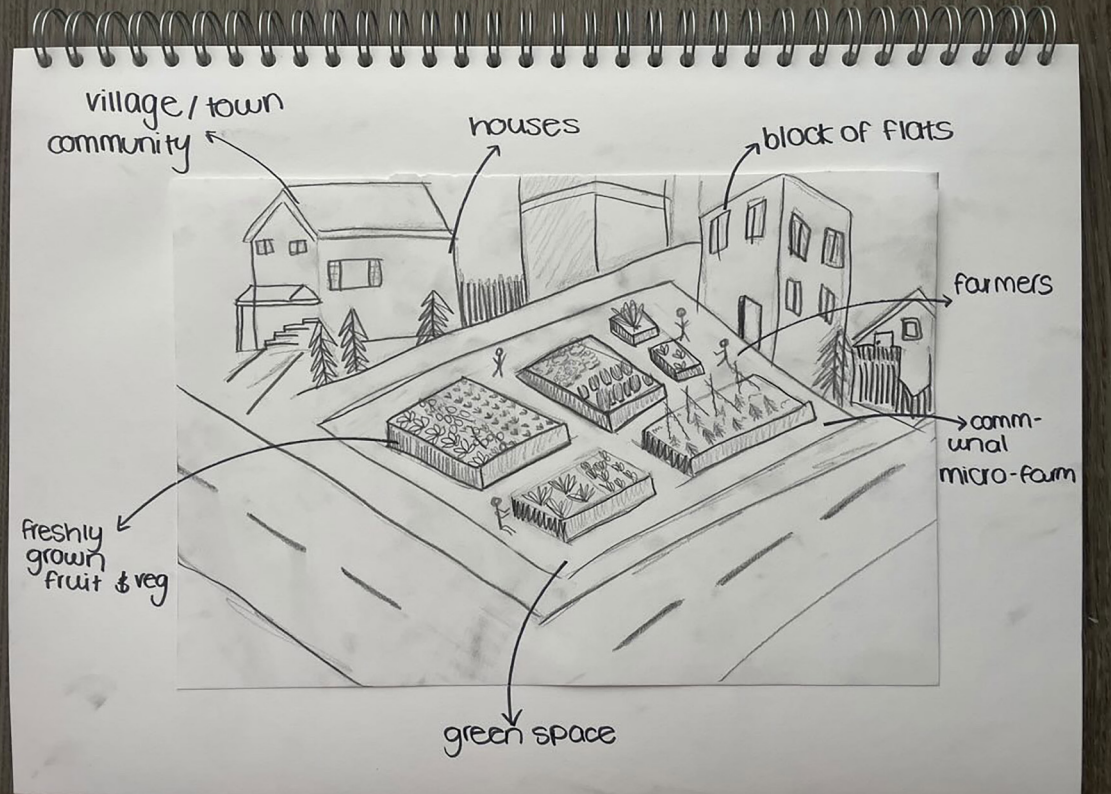 village/town
community
houses
block of flats
farmers
comm-
unal
micro-farm
freshly
grown
fruit & veg
green space